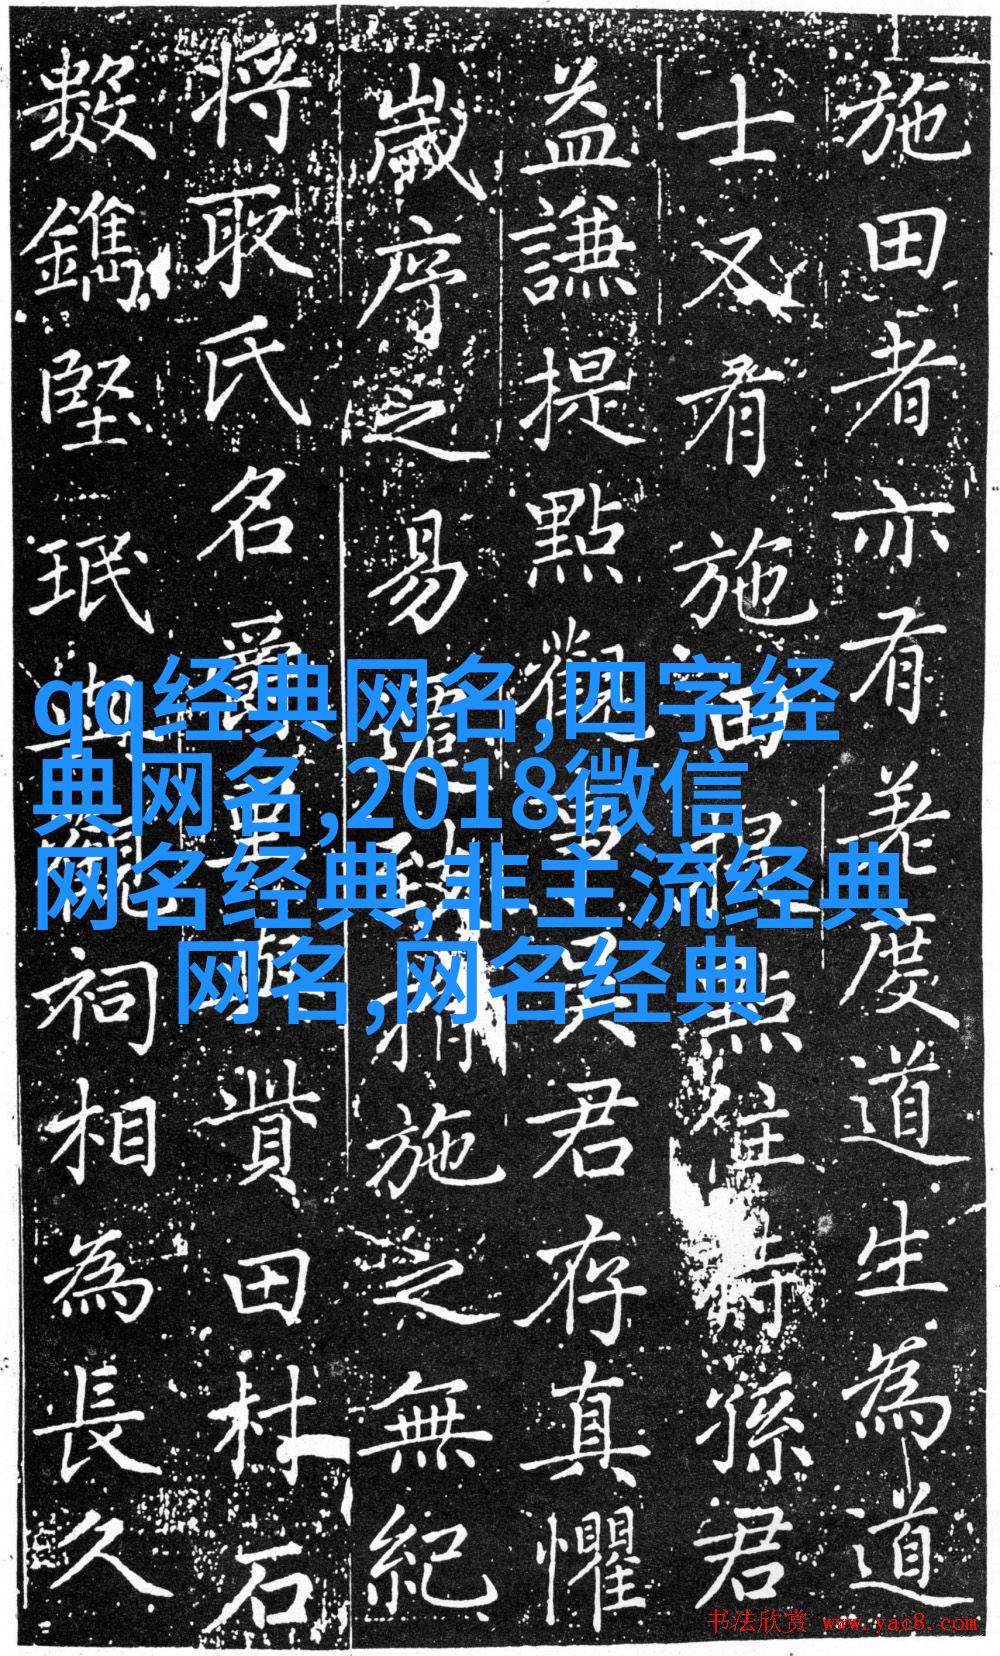 施田者亦有度道生為道
士又有施田點住持孫君
益謙提點觀君存真懼
歲序之易施之無紀
將取氏名爵貲田杜石
數鐫堅珉與祠相為長久
qq经典网名,四字经
典网名,2018微信
网名经典,非主流经典
网名,网名经典
书法欣赏 www.yac8.com